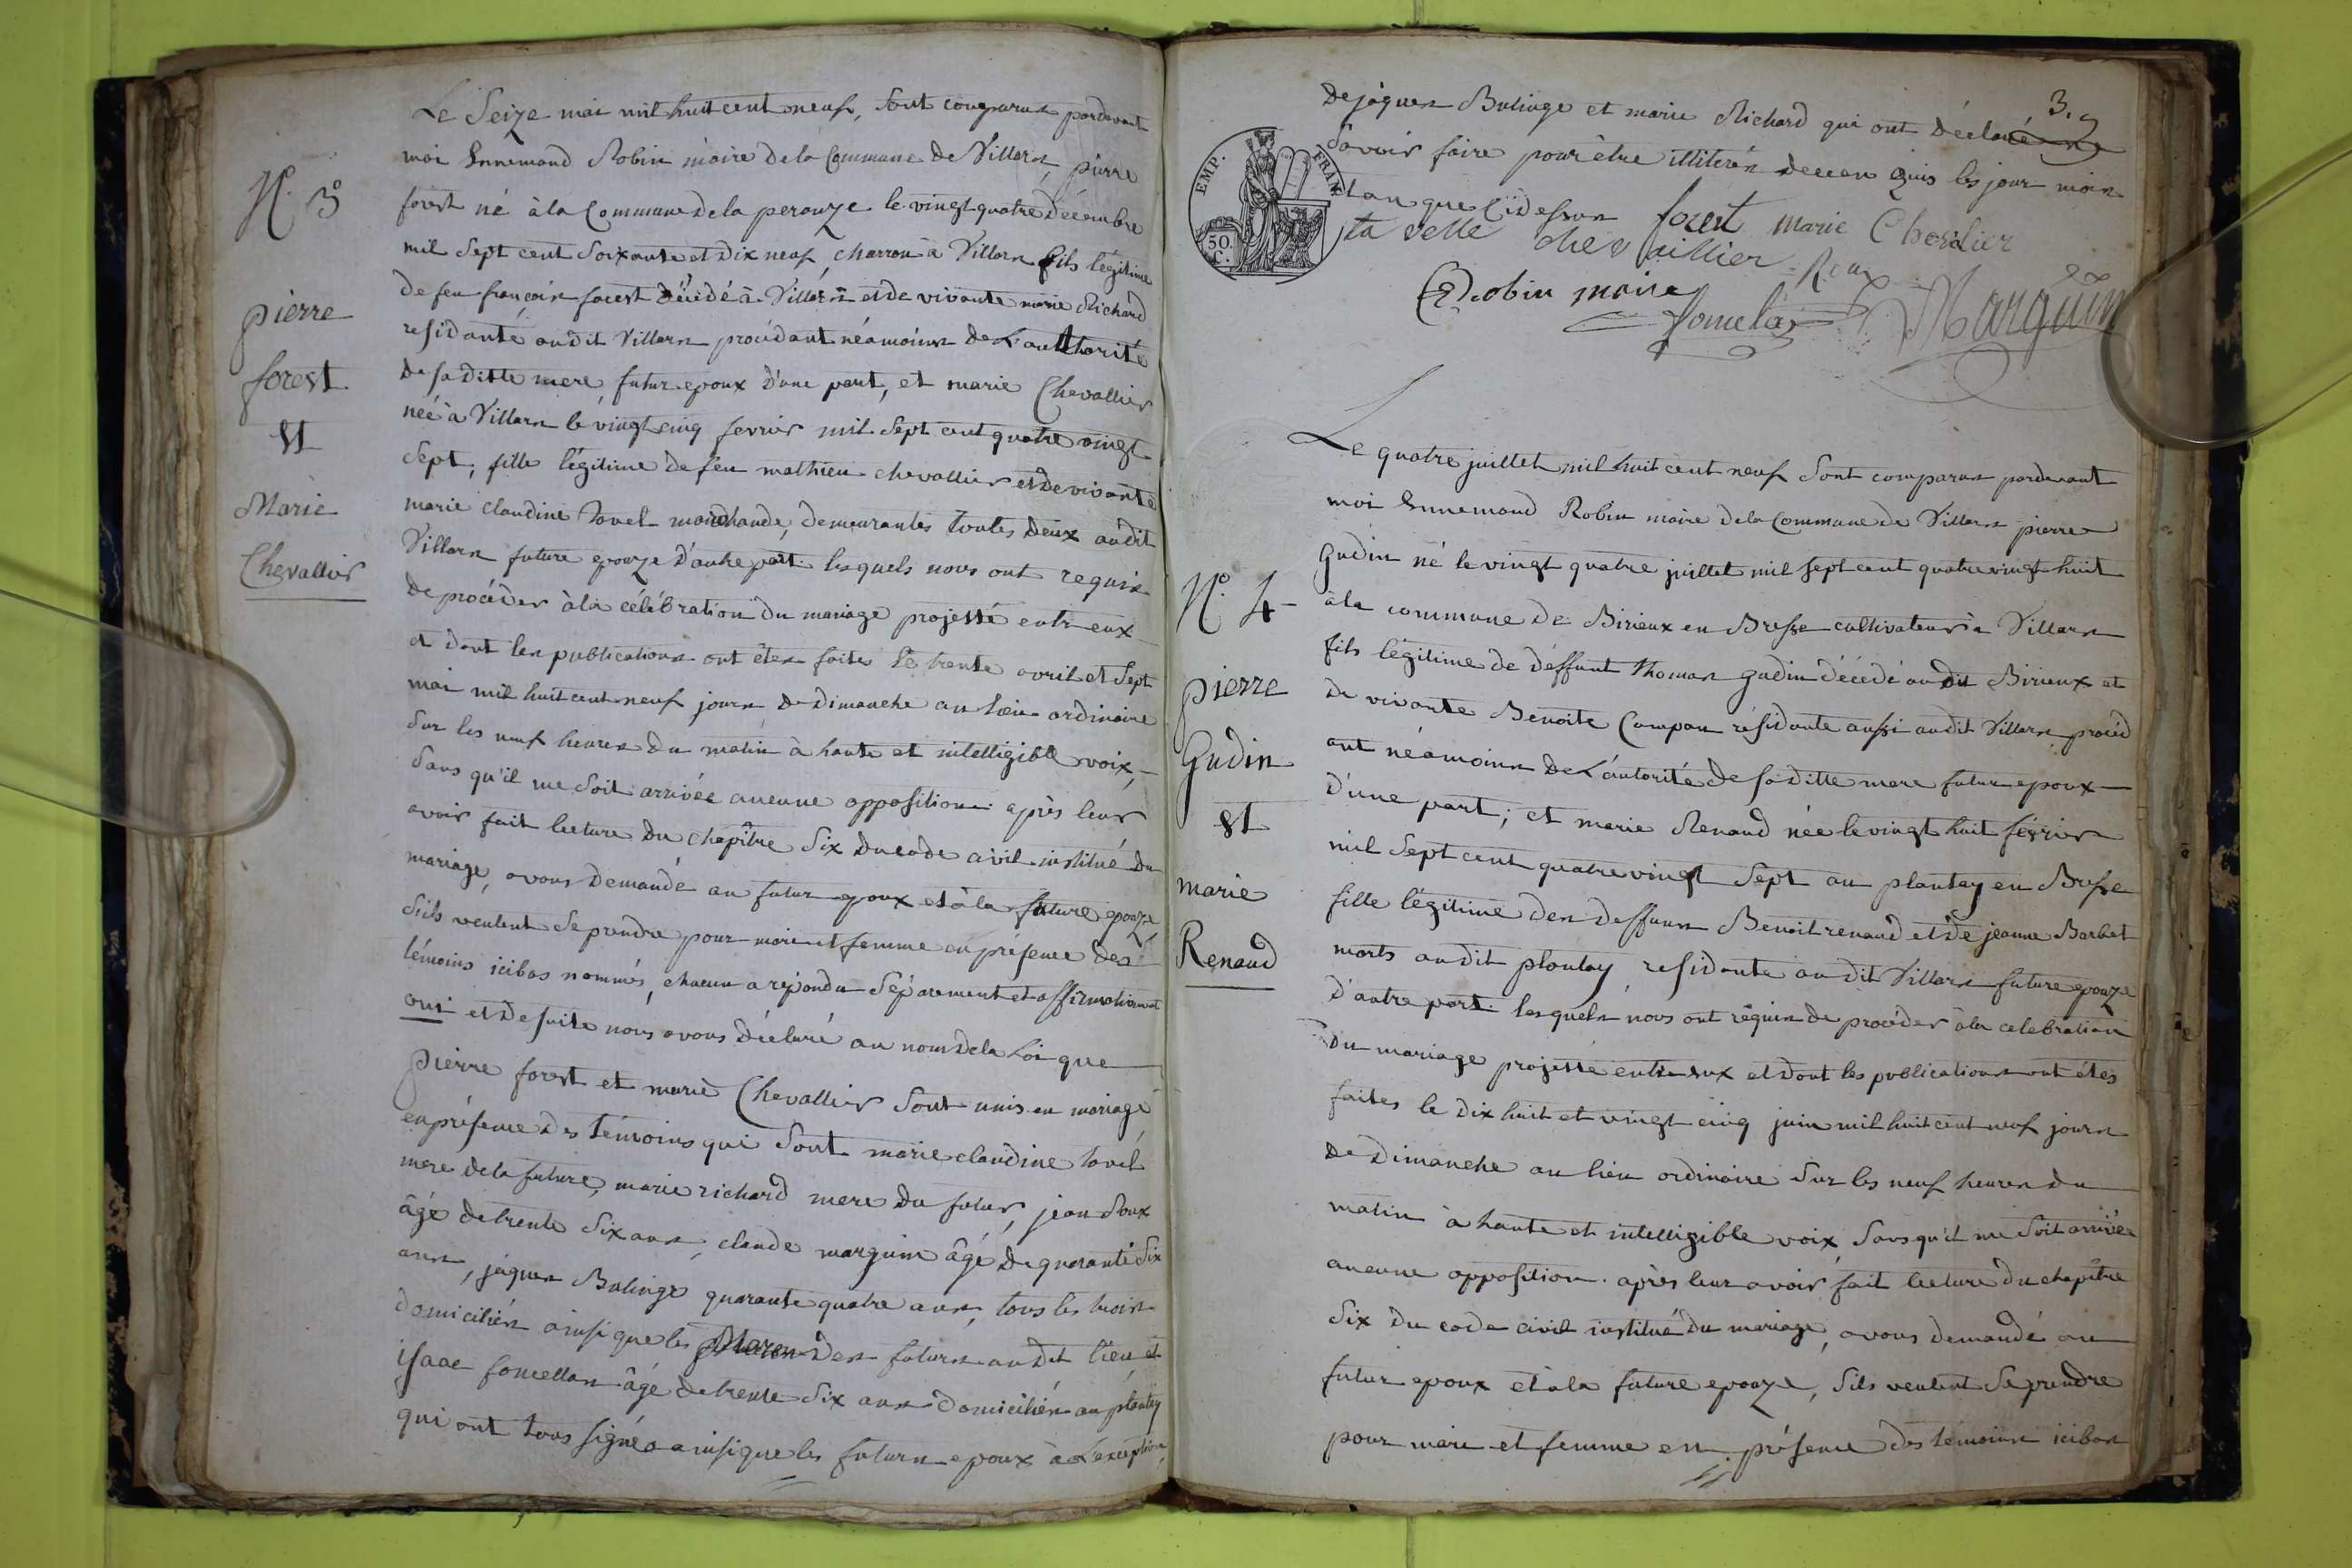 N.° 3°
pierre
forest
Et
Marie
Chevallier
Le Seize mai mil huit cent neuf, sont comparus pardevant
moi Ennemond Robin maire de la Commune de Villars, pierre
forest né à la Commune de la perouze le vingt quatre décembre
mil sept cent soixante et dix neuf, charron à Villars fils légitime
de feu françois forest décédé à Villars et de vivante marie Richard
residante audit Villars procédant néamoins de L'authorité
de sa ditte mere, futur epoux d'une part, et marie Chevallier
née à Villars le vingt cinq fevrier mil sept cent quatre vingt
sept, fille légitime de feu mathieu chevallier et de vivante
marie claudine tavel marchande, demeurantes toutes deux audit
Villars future epouze d'autre part lesquels nous ont requis
de procéder à la célébration du mariage projetté entr'eux
et dont les publications ont étés faites le trente avril et sept
mai mil huit cent neuf jours de dimanche au lieu ordinaire
sur les neuf heures du matin à haute et intelligible voix,
sans qu'il me soit arrivée aucune opposition. après leur
avoir fait lecture du chapitre six du code civil institué du
mariage, avons demandé au futur epoux et à la future epouze
s'ils veulent se prendre pour mari et femme en présence des
témoins icibas nommés, chacun a répondu séparement et affirmativement
oui et de suite nous avons déclaré au nom de la Loi que
pierre forest et marie Chevallier sont unis en mariage
en présence des témoins qui sont marie claudine tavel
mere de la future, marie richard mere du futur, jean Roux
âgé de trente six ans, claude marguin âgé de quarante six
ans, jâques Bulinge quarante quatre ans, tous les trois
domiciliés ainsi que les Meres des futurs audit lieu et
isaac foncellas âgé de trente six ans domiciliés au plantay
qui ont tous signés ainsi que les futurs epoux à L'exception
3.
EMP. FRAN.
50. C.
de jâques Bulinge et marie Richard qui ont déclaré ne
savoir faire pour être illitérés de ce en quis les jour mois
et an que cidessus forest marie Chevalier
ta velle chev aillier Roux
E Robin maire Marguin
Le quatre juillet mil huit cent neuf sont comparus pardevant
moi Ennemond Robin maire de la Commune de Villars pierre
gudin né le vingt quatre juillet mil sept cent quatre vingt huit
à la commune de Birieux en Bresse cultivateur à Villars
fils légitime de deffunt thomas gudin décédé audit Birieux et
de vivante Benoite Campan résidante aussi audit Villars, procéd
ant néamoins de L'autorité de sa ditte mere futur epoux
d'une part; et marie Renaud née le vingt huit février
mil sept cent quatre vingt sept au plantay en Bresse
fille légitime des deffuns Benoit renaud et de jeanne Barbet
morts audit plantay, residante audit Villars future epouze
d'autre part. lesquels nous ont réquis de procéder à la celebration
du mariage projetté entre eux et dont les publications ont étés
faites le dix huit et vingt cinq juin mil huit cent neuf jours
de dimanche au lieu ordinaire sur les neuf heures du
matin à haute et intelligible voix, sans qu'il me soit arrivée
aucune opposition. après leur avoir fait lecture du chapitre
six du code civil institué du mariage, avons demandé au
futur epoux et à la future epouze, s'ils veulent se prendre
pour mari et femme en présence des témoins icibas
N.° 4
pierre
Gudin
Et
marie
Renaud